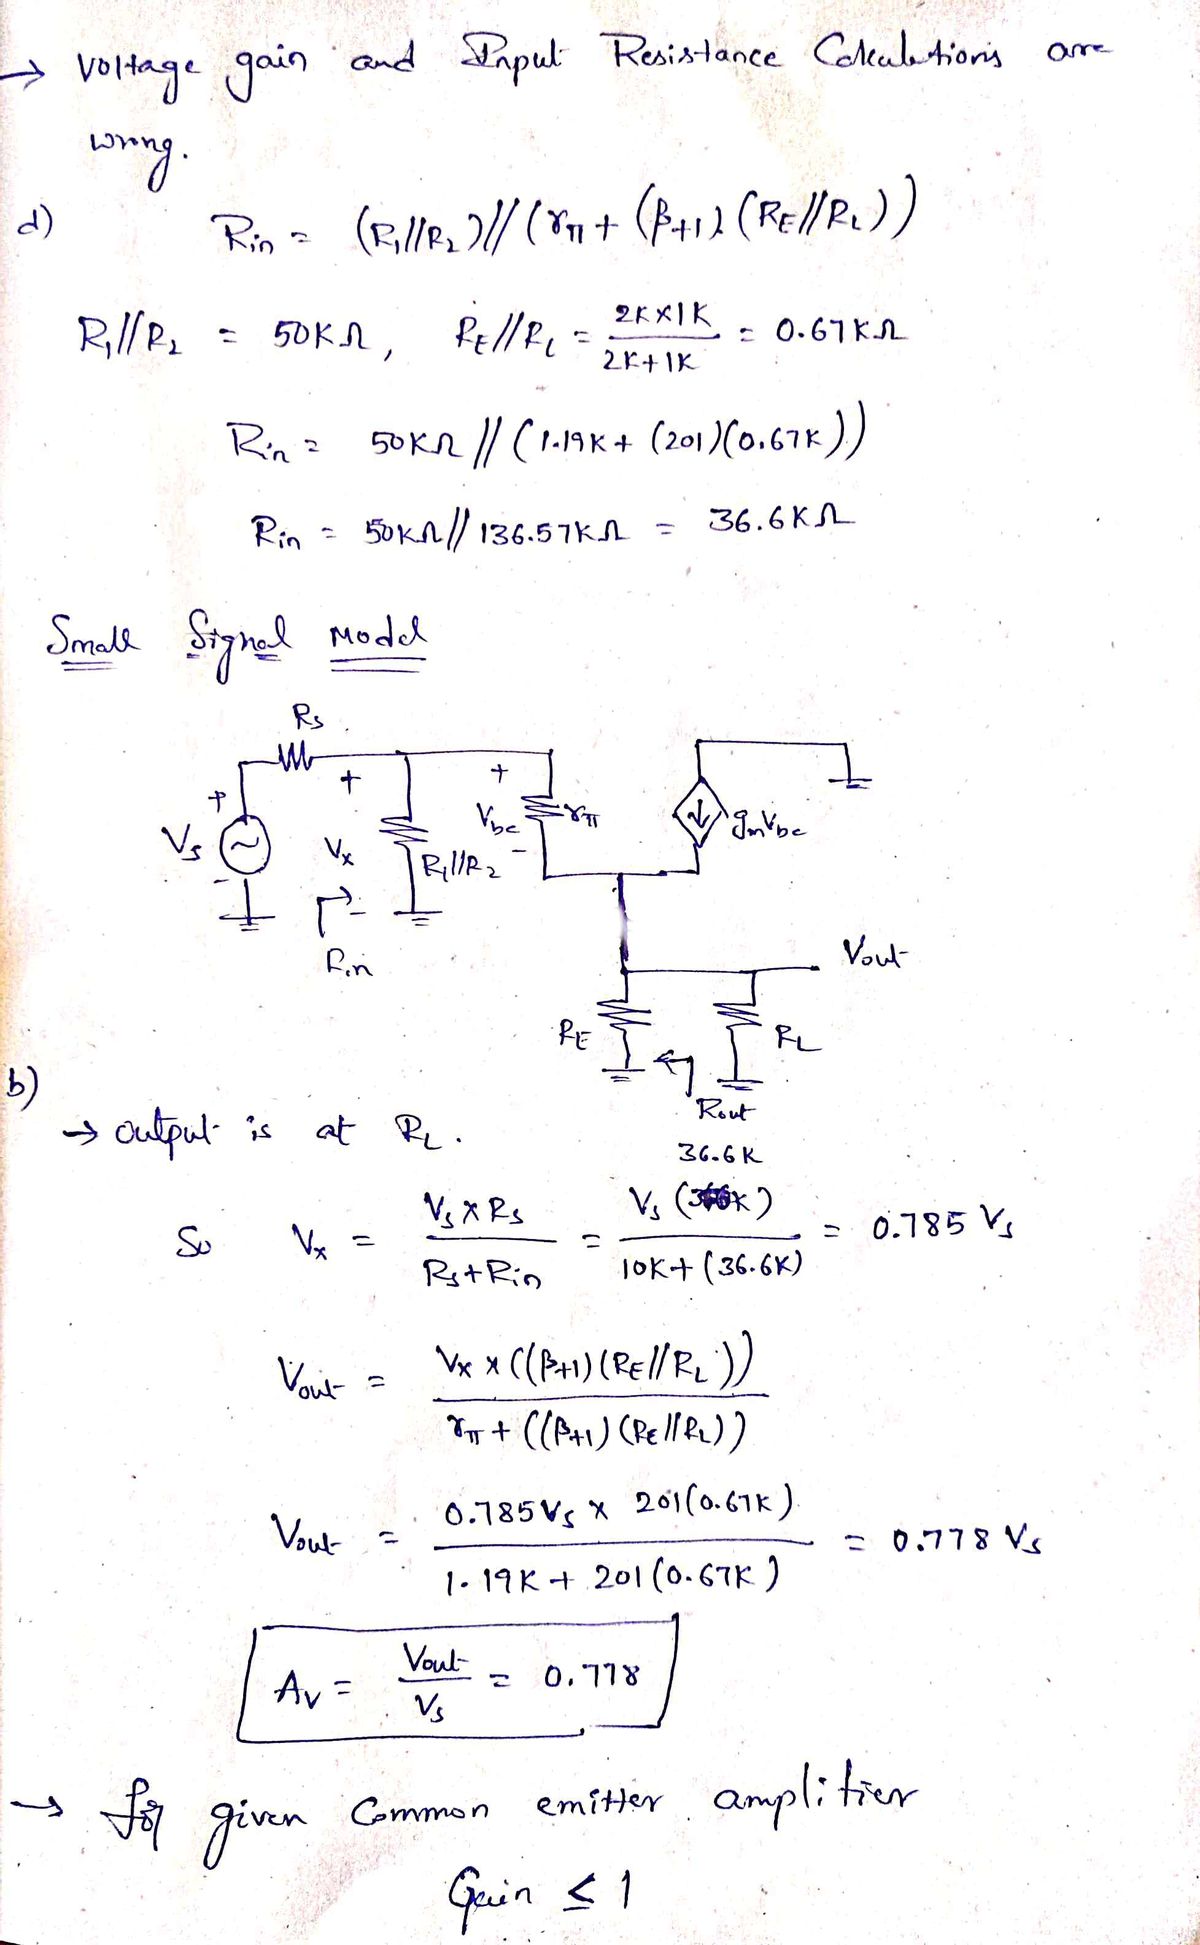 → Voltage gain and Input Resistance Calculations are
wrong.
d) Rin = (R1//R2)//(rπ + (β+1)(RE//RL))
R1//R2 = 50KΩ, RE//RL = 2K×1K / 2K+1K = 0.67KΩ
Rin = 50KΩ // (1.19K + (201)(0.67K))
Rin = 50KΩ // 136.57KΩ = 36.6KΩ
Small Signal Model
Rs
+ + +
Vs Vx R1//R2 Vbe rπ gmVbe
- - -
Rin
Vout
RE RL
Rout
b)
→ output is at RL.
36.6K
So Vx = Vs × Rs / Rs + Rin = Vs ( K) / 10K + (36.6K) = 0.785 Vs
Vout = Vx × ((β+1)(RE//RL)) / rπ + ((β+1)(RE//RL))
Vout = 0.785Vs × 201(0.67K) / 1.19K + 201(0.67K) = 0.778 Vs
Av = Vout / Vs = 0.778
→ for given Common emitter amplifier
Gain ≤ 1